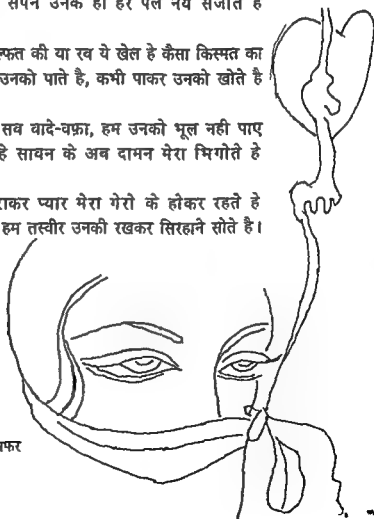 सपने उनके ही हर पल नये सजाते है
ल्फत की या रब ये खेल हे कैसा किस्मत का
उनको पाते है, कभी पाकर उनको खोते है
सब वादे-वफ़ा, हम उनको भूल नही पाए
हे सावन के अब दामन मेरा भिगोते हे
राकर प्यार मेरा गेरो के होकर रहते हे
हम तस्वीर उनकी रखकर सिरहाने सोते है।
फर